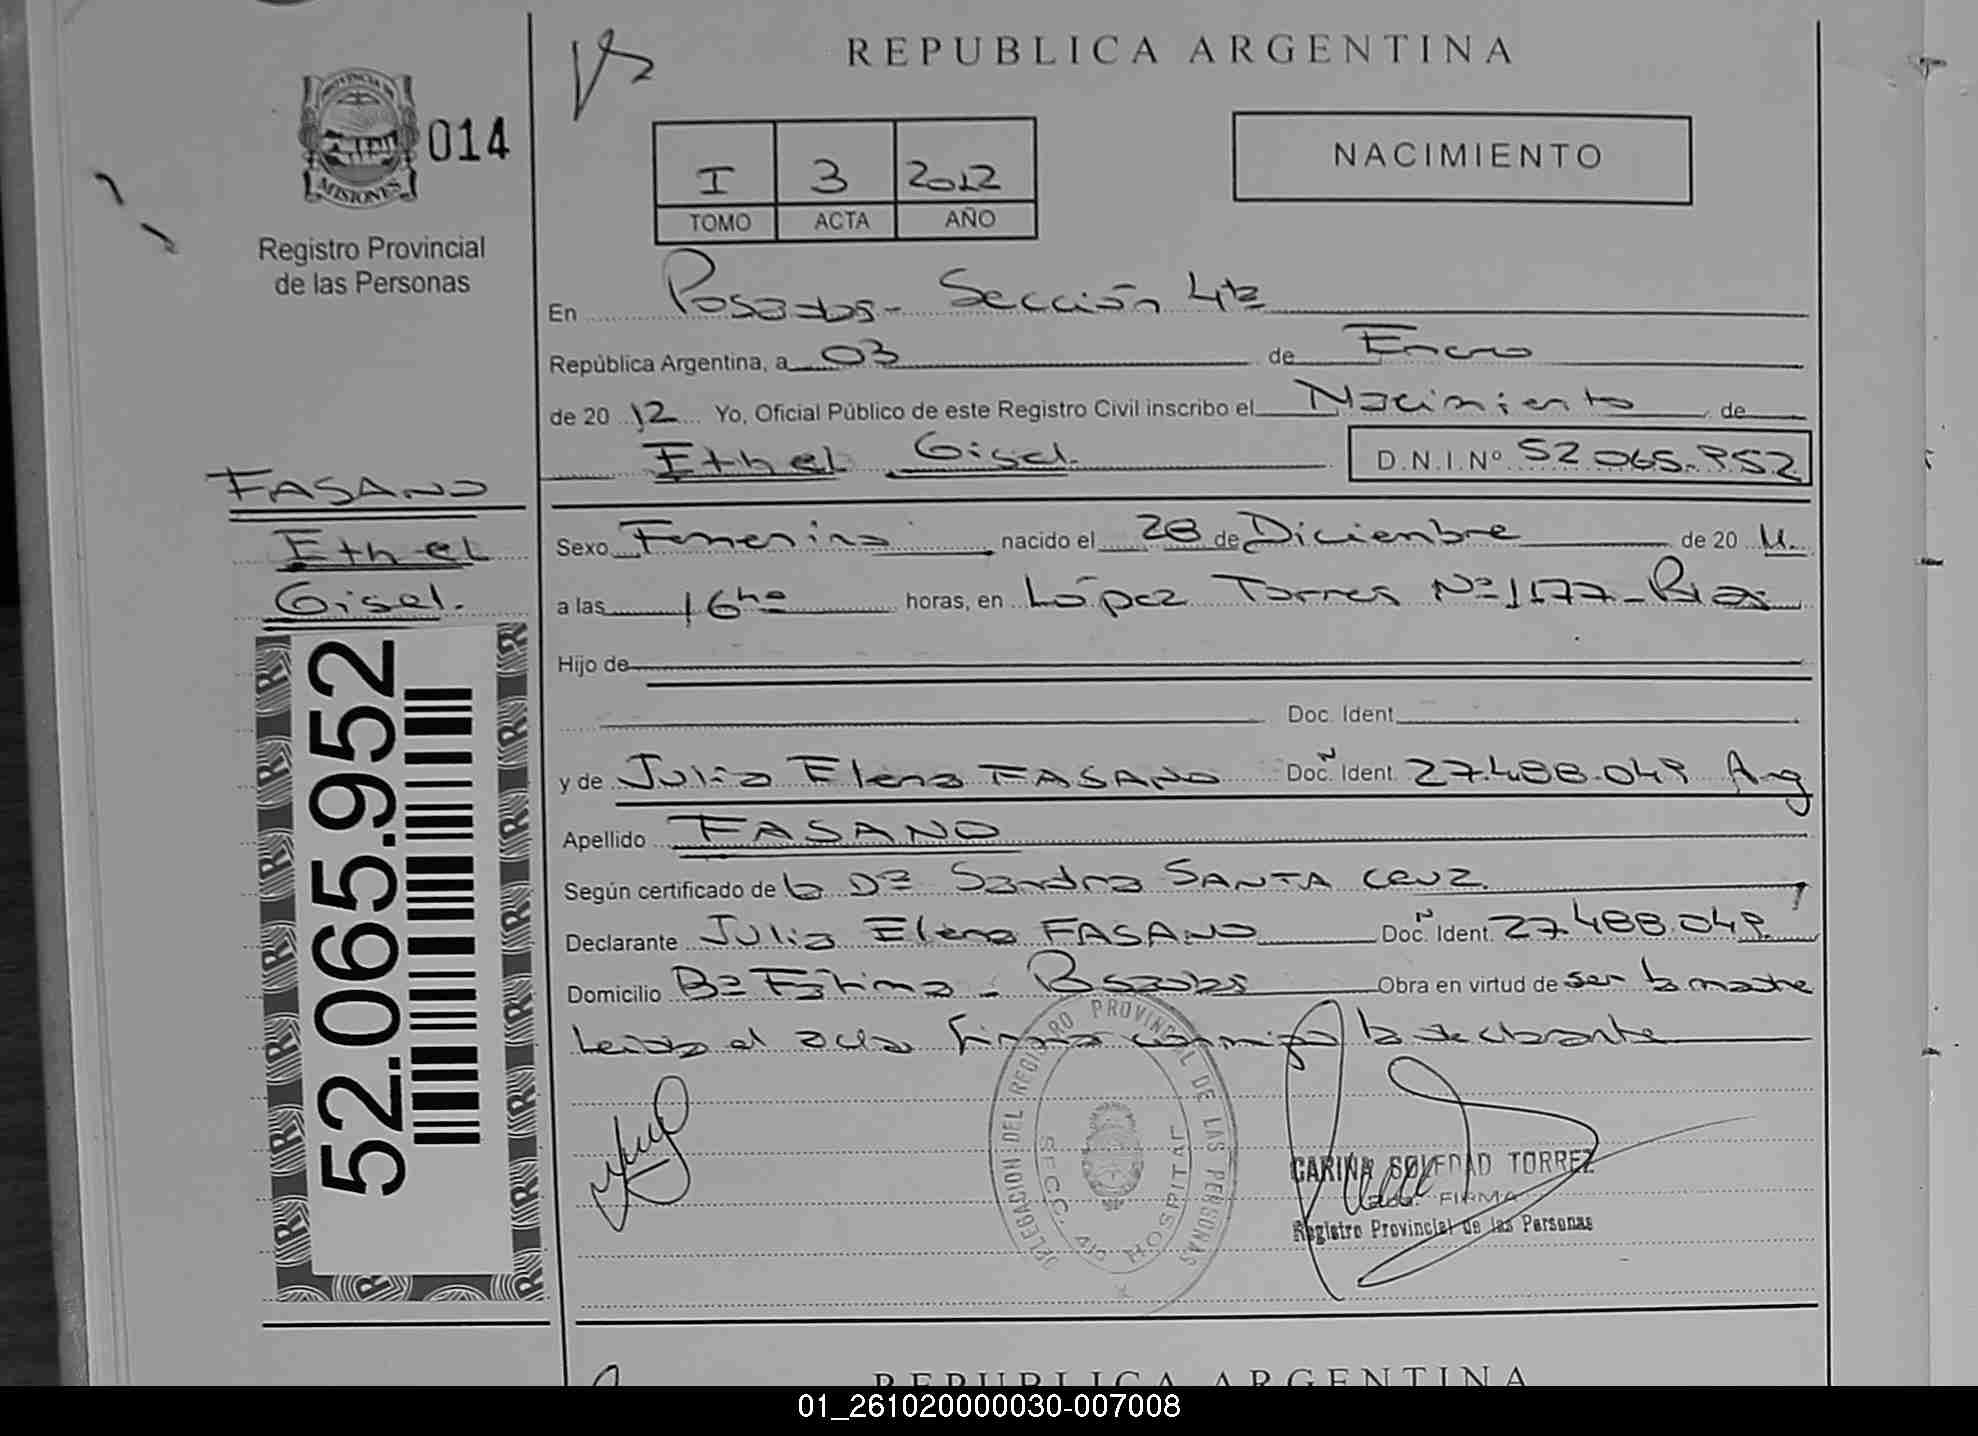 REPUBLICA ARGENTINA
PROVINCIA DE
MISIONES
014
Registro Provincial
de las Personas
I 3 2012
TOMO ACTA AÑO
NACIMIENTO
En Posadas - Sección 4ta
República Argentina, a 03 de Enero
de 20 12 Yo, Oficial Público de este Registro Civil inscribo el Nacimiento de
Ethel Gisel. D.N.I.Nº 52.065.952
FASANO
Ethel
Gisel.
52.065.952
Sexo Femenino nacido el 28 de Diciembre de 20 11.
a las 16hs horas, en López Torres Nº 1177 - Pdas
Hijo de
Doc. Ident.
y de Julia Elena FASANO Doc. Ident. 27.488.049 Arg
Apellido FASANO
Según certificado de la Dra Sandra SANTA CRUZ.
Declarante Julia Elena FASANO Doc. Ident. 27.488.049.
Domicilio Bº Fátima - Posadas Obra en virtud de ser la madre
Leida el acta firma conmigo la declarante
DELEGACION DEL REGISTRO PROVINCIAL DE LAS PERSONAS
SECC. 4ta HOSPITAL
CARINA SOLEDAD TORREZ
FIRMA
Registro Provincial de las Personas
REPUBLICA ARGENTINA
01_261020000030-007008